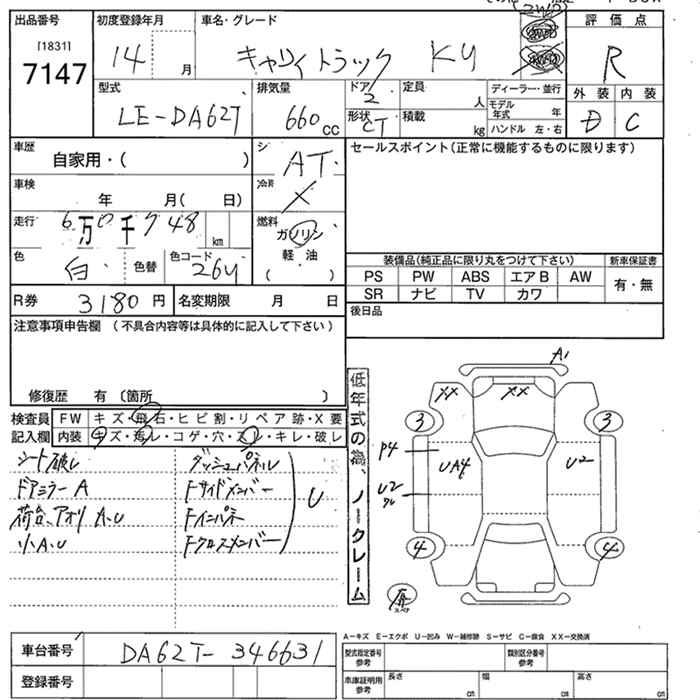 2WD
出品番号 初度登録年月 車名・グレード 評価点
[1831]
7147 14 月 キャリイトラック KU R
型式 排気量 ドア 定員 ディーラー・並行 外装 内装
LE-DA62T 660 CC 2 人 モデル年式 年 D C
形状 CT 積載 kg ハンドル 左・右
車歴 自家用・( ) シ AT セールスポイント(正常に機能するものに限ります)
車検 年 月( 日) 冷房 X
走行 6万0千748 km 燃料 ガソリン
軽油
( )
色 白 色替 色コード 26U
装備品(純正品に限り丸をつけて下さい) 新車保証書
PS PW ABS エアB AW 有・無
SR ナビ TV カワ
R券 3180円 名変期限 月 日 後日品
注意事項申告欄 (不具合内容等は具体的に記入して下さい)
修復歴 有 (箇所 )
検査員 FW キズ・飛石・ヒビ割・リペア跡・X要
記入欄 内装 キズ・汚レ・コゲ・穴・スレ・キレ・破レ
シート破レ ダッシュパネル
ドアミラー A Fサイドメンバー
荷台、アオリ A、U Fインパネ U
小A、U Fクロスメンバー
低年式の為、ノークレーム
A1
XX XX
3 3
P4 UA4 U2
U2
4 4
スペア
A-キズ E-エクボ U-凹み W-補修跡 S-サビ C-腐食 XX-交換済
車台番号 DA62T-346631 型式指定番号 参考 類別区分番号 参考
登録番号 車庫証明用 参考 長さ cm 幅 cm 高さ cm